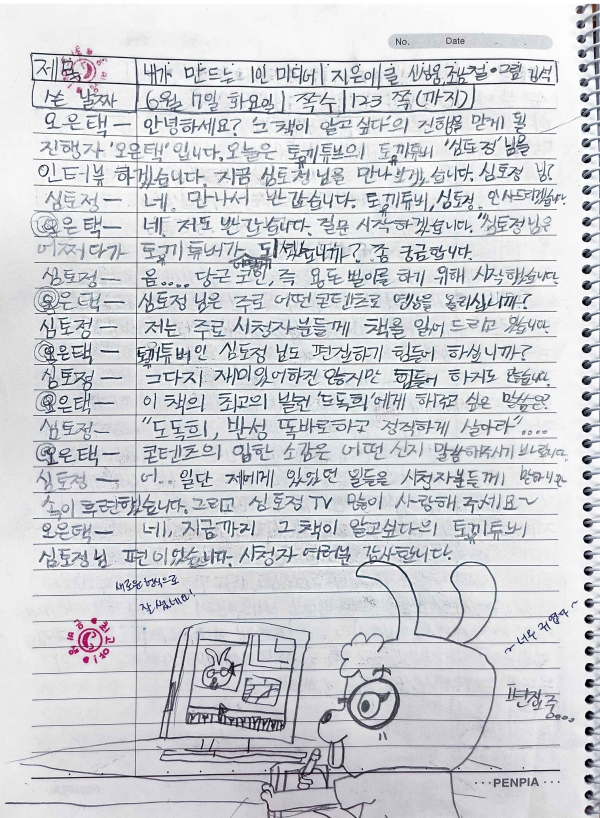 No. Date
제목 내가 만드는 1인 미디어 지은이 글
쓴 날짜 6월 7일 화요일 쪽수 123 쪽(까지)
오은택 — 안녕하세요? '그 책이 알고싶다'의 진행을 맡게 될
진행자 '오은택'입니다. 오늘은 토끼튜브의 토끼튜버 '심토정'님을
인터뷰 하겠습니다. 지금 심토정님을 만나보겠습니다. 심토정 님?
심토정 — 네. 만나서 반갑습니다. 토끼튜버, 심토정. 인사드리겠습니다.
오은택 — 네. 저도 반갑습니다. 질문 시작하겠습니다. "심토정님은
어쩌다가 토끼튜버가 되셨습니까? 좀 궁금합니다.
심토정 — 음.... 당근 코인, 즉 용돈 벌이를 하기 위해 시작했습니다.
오은택 — 심토정 님은 주로 어떤 콘텐츠로 영상을 올리십니까?
심토정 — 저는 주로 시청자분들께 책을 읽어 드리고 있습니다.
오은택 — 토끼튜버인 심토정 님도 편집하기 힘들어 하십니까?
심토정 — 그다지 재미있어하진 않지만 힘들어 하지도 않습니다.
오은택 — 이 책의 최고의 빌런 '도독희'에게 하려고 싶은 말씀은?
심토정 — "도독희, 반성 똑바로하고 정직하게 살아라"....
오은택 — 콘텐츠의 입한 소감은 어떤 신지 말씀해주시기 바랍니다.
심토정 — 어.. 일단 제에게 있었던 일들을 시청자분들께 말하니
속이 후련했습니다. 그리고 심토정TV 많이 사랑해 주세요~
오은택 — 네, 지금까지 그 책이 알고싶다의 토끼튜버
심토정님 편이었습니다. 시청자 여러분 감사합니다.
새로운 형식으로
잘 썼네요!
~너무 귀엽다~
편집중...
PENPIA